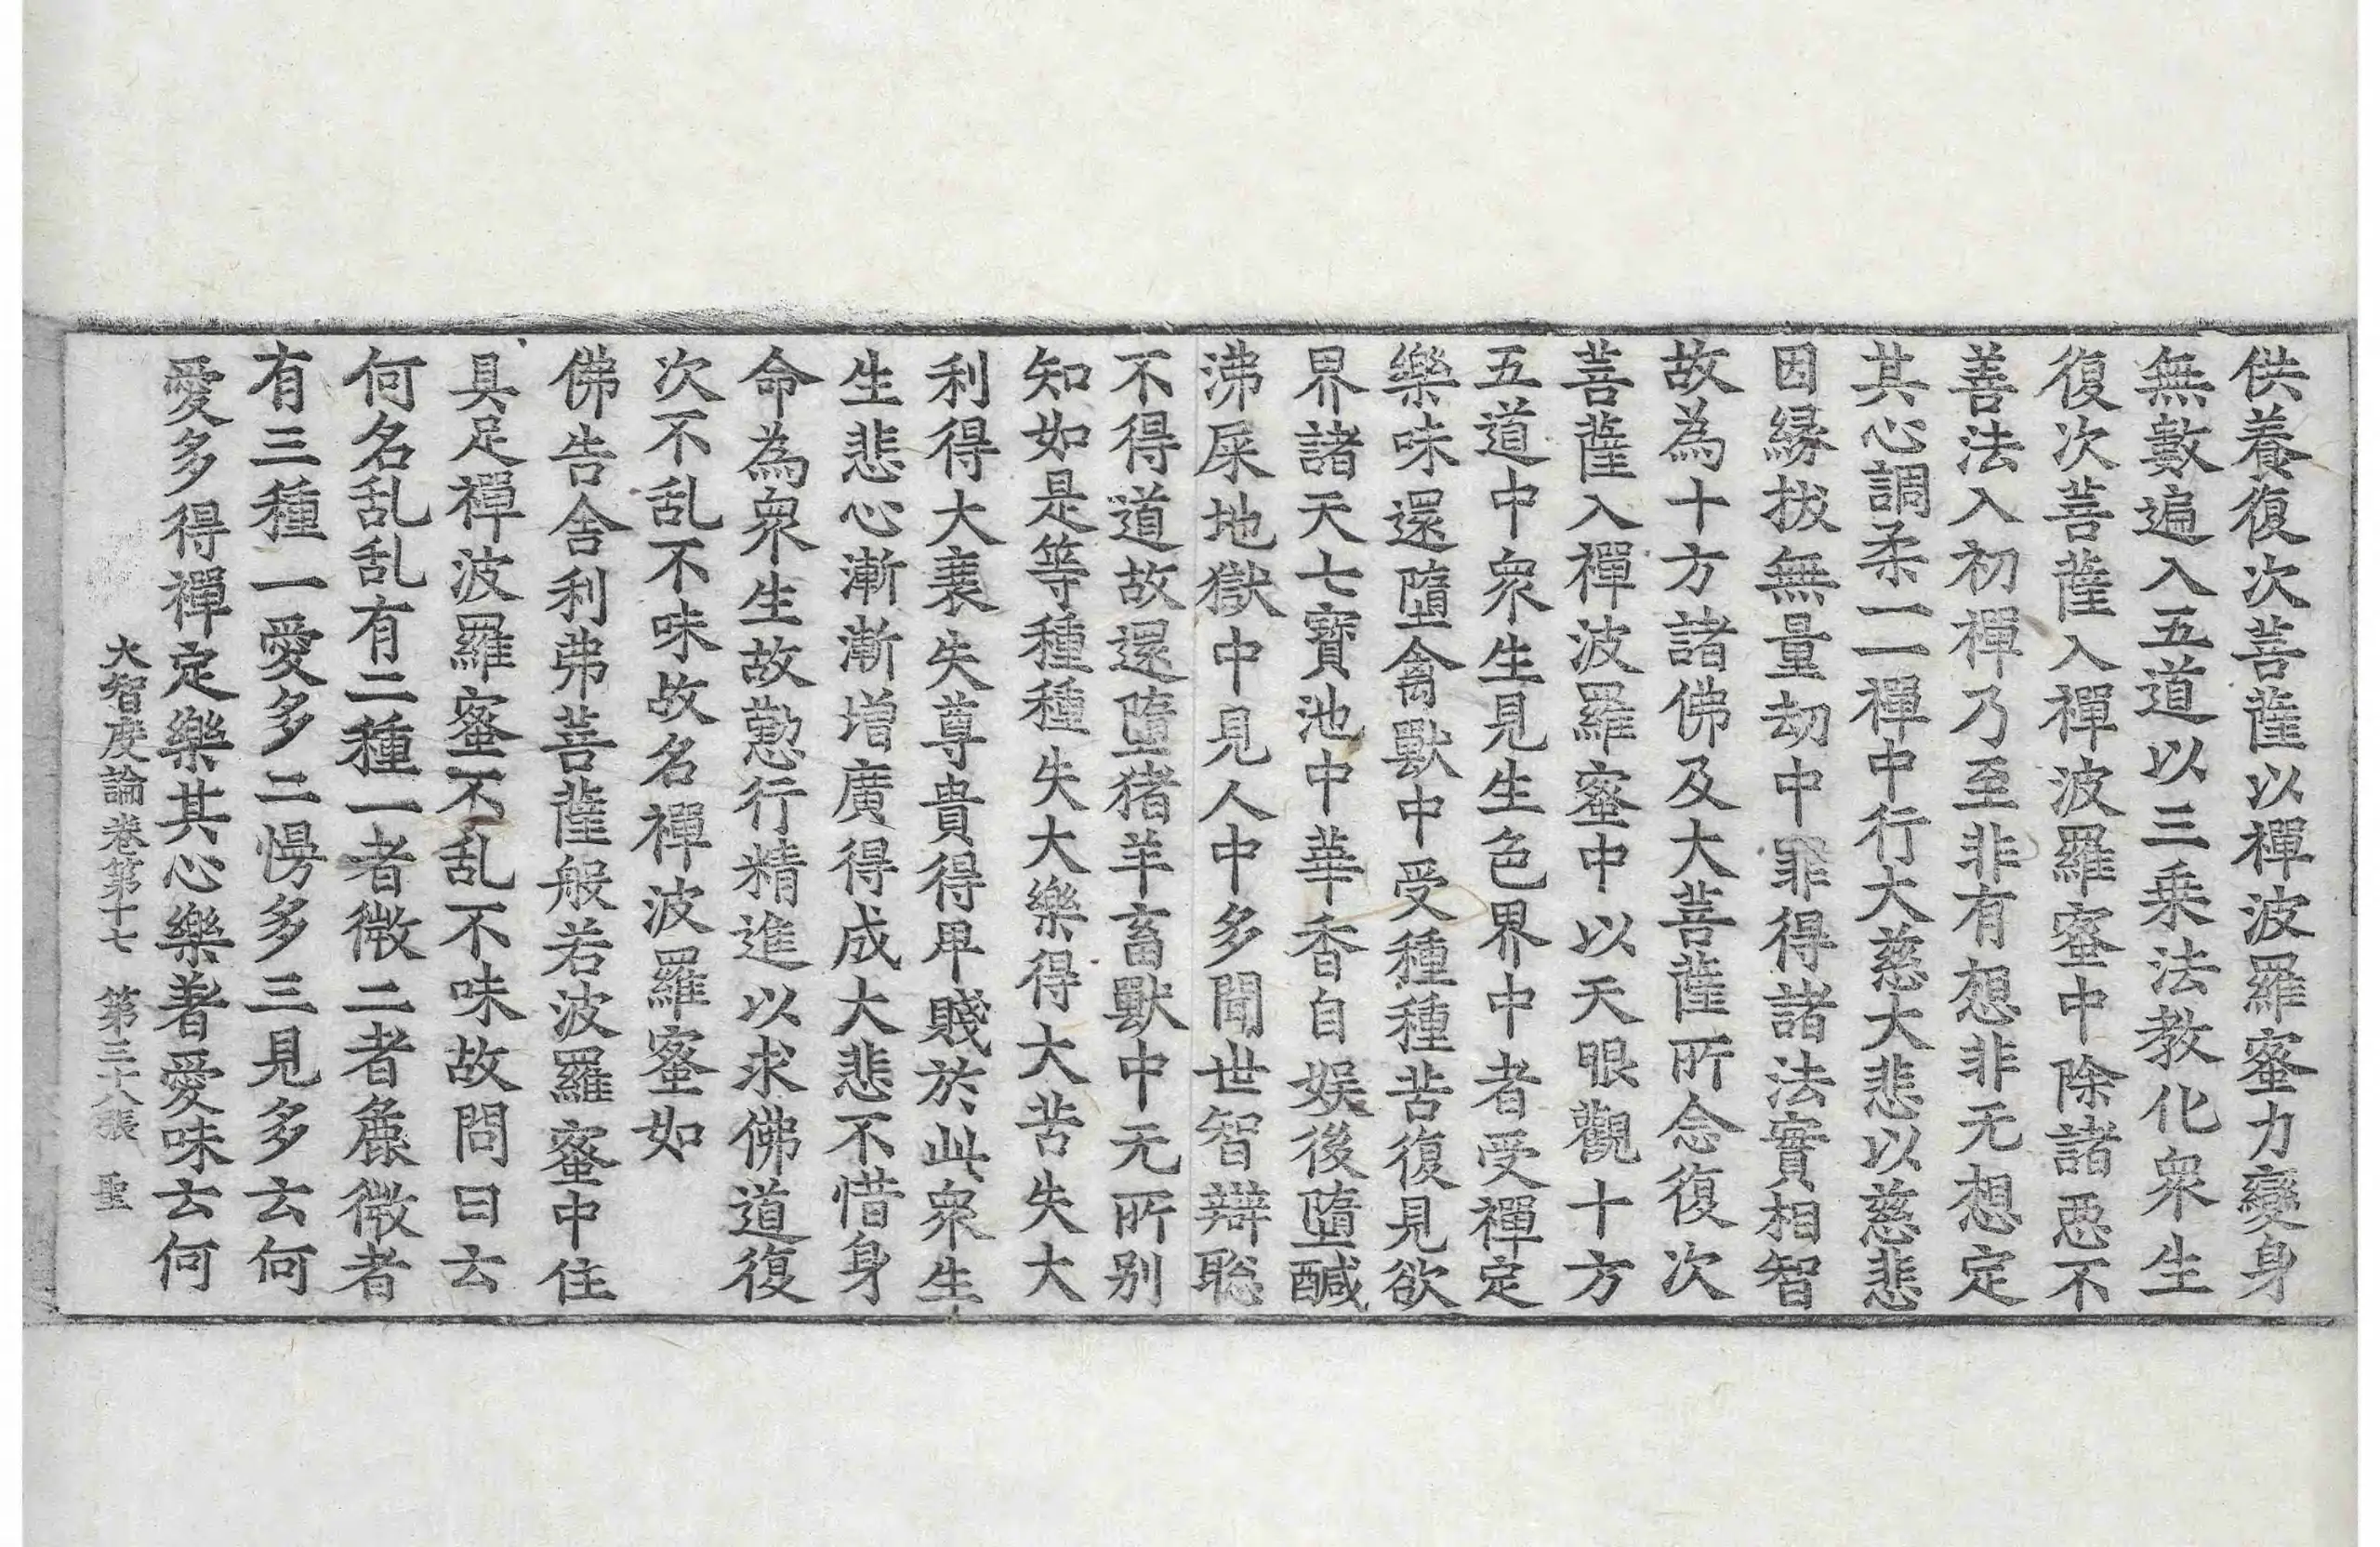 供養復次菩薩以禪波羅蜜力變身
無數遍入五道以三乗法教化衆生
復次菩薩入禪波羅蜜中除諸惡不
善法入初禪乃至非有想非无想定
其心調柔一一禪中行大慈大悲以慈悲
因緣拔無量劫中罪得諸法實相智
故為十方諸佛及大菩薩所念復次
菩薩入禪波羅蜜中以天眼觀十方
五道中衆生見生色界中者受禪定
樂味還墮禽獸中受種種苦復見欲
界諸天七寶池中華香自娛後墮醎
沸屎地獄中見人中多聞世智辯聡
不得道故還墮猪羊畜獸中无所别
知如是等種種失大樂得大苦失大
利得大衰失尊貴得卑賤於此衆生
生悲心漸漸增廣得成大悲不惜身
命為衆生故懃行精進以求佛道復
次不乱不味故名禪波羅蜜如
佛告舍利弗菩薩般若波羅蜜中住
具足禪波羅蜜不乱不味故問曰云
何名乱乱有二種一者微二者麁微者
有三種一愛多二慢多三見多云何
愛多得禪定樂其心樂著愛味云何
大智度論卷第十七 第三十八張 聖